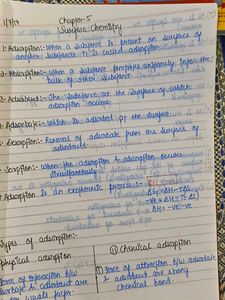 1/7/19 Chapter-5
Surface Chemistry
1. Adsorption:- When a substance is present on surface of
another substance. It is called adsorption.
2. Absorption:- When a substance penetrates uniformly into the
bulk of other substance.
3. Adsorbent:- The substance at the surface of which
adsorption occurs.
4. Adsorbate:- Which is adsorbed at the surface.
5. Desorption:- Removal of adsorbate from the surface of
adsorbent.
6. Sorption:- Where the adsorption & absorption occurs
simultaneously.
Adsorption is an exothermic process:-
ΔG = ΔH - TΔS
-ve = ΔH - T(-ΔS)
ΔH = -ve -ve
Types of adsorption:-
Physical adsorption
(ii) Chemical adsorption
Force of attraction b/w
adsorbate & adsorbent are
① Force of attraction b/w adsorbate
& adsorbent are strong
chemical bond.